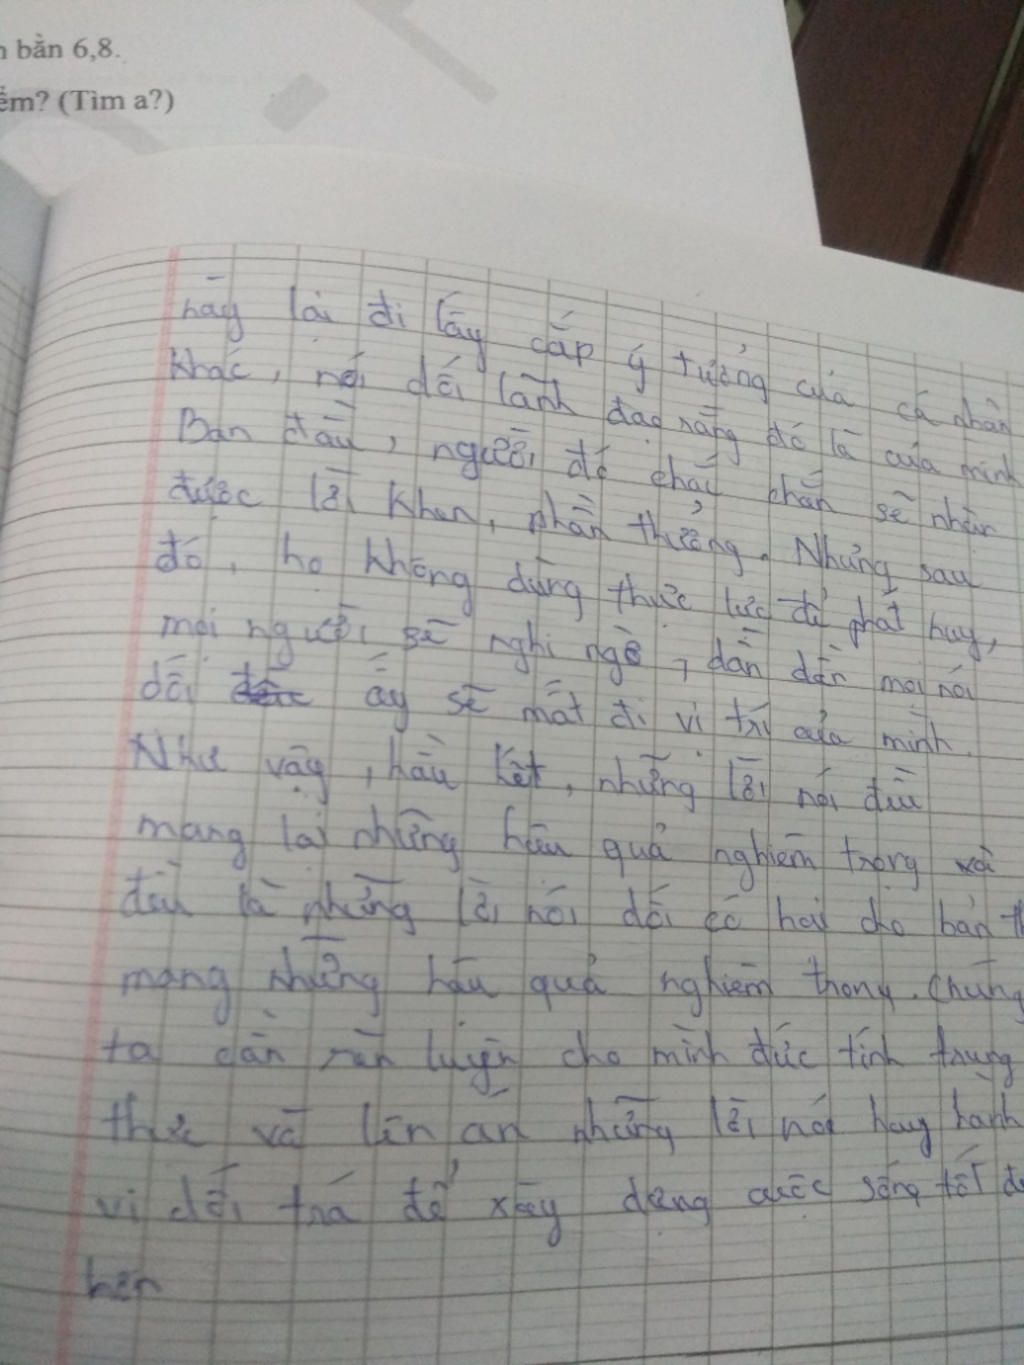 bằn 6,8.
ểm? (Tìm a?)
này lại đi lấy cắp ý tưởng của cá nhân
khác, nói dối lãnh đạo rằng đó là của mình
Ban đầu, người đó chắc chắn sẽ nhận
được lời khen, phần thưởng. Nhưng sau
đó, họ không dùng thực lực để phát huy,
mọi người sẽ nghi ngờ, dần dần mọi nói
dối ấy sẽ mất đi vị trí của mình.
Như vậy, hầu hết, những lời nói đều
mang lại những hậu quả nghiêm trọng và
đều là những lời nói dối có hại cho bản th
mang những hậu quả nghiêm trọng. Chúng
ta cần rèn luyện cho mình đức tính trung
thực và lên án những lời nói hay hành
vi dối trá để xây dựng cuộc sống tốt đẹ
hơn